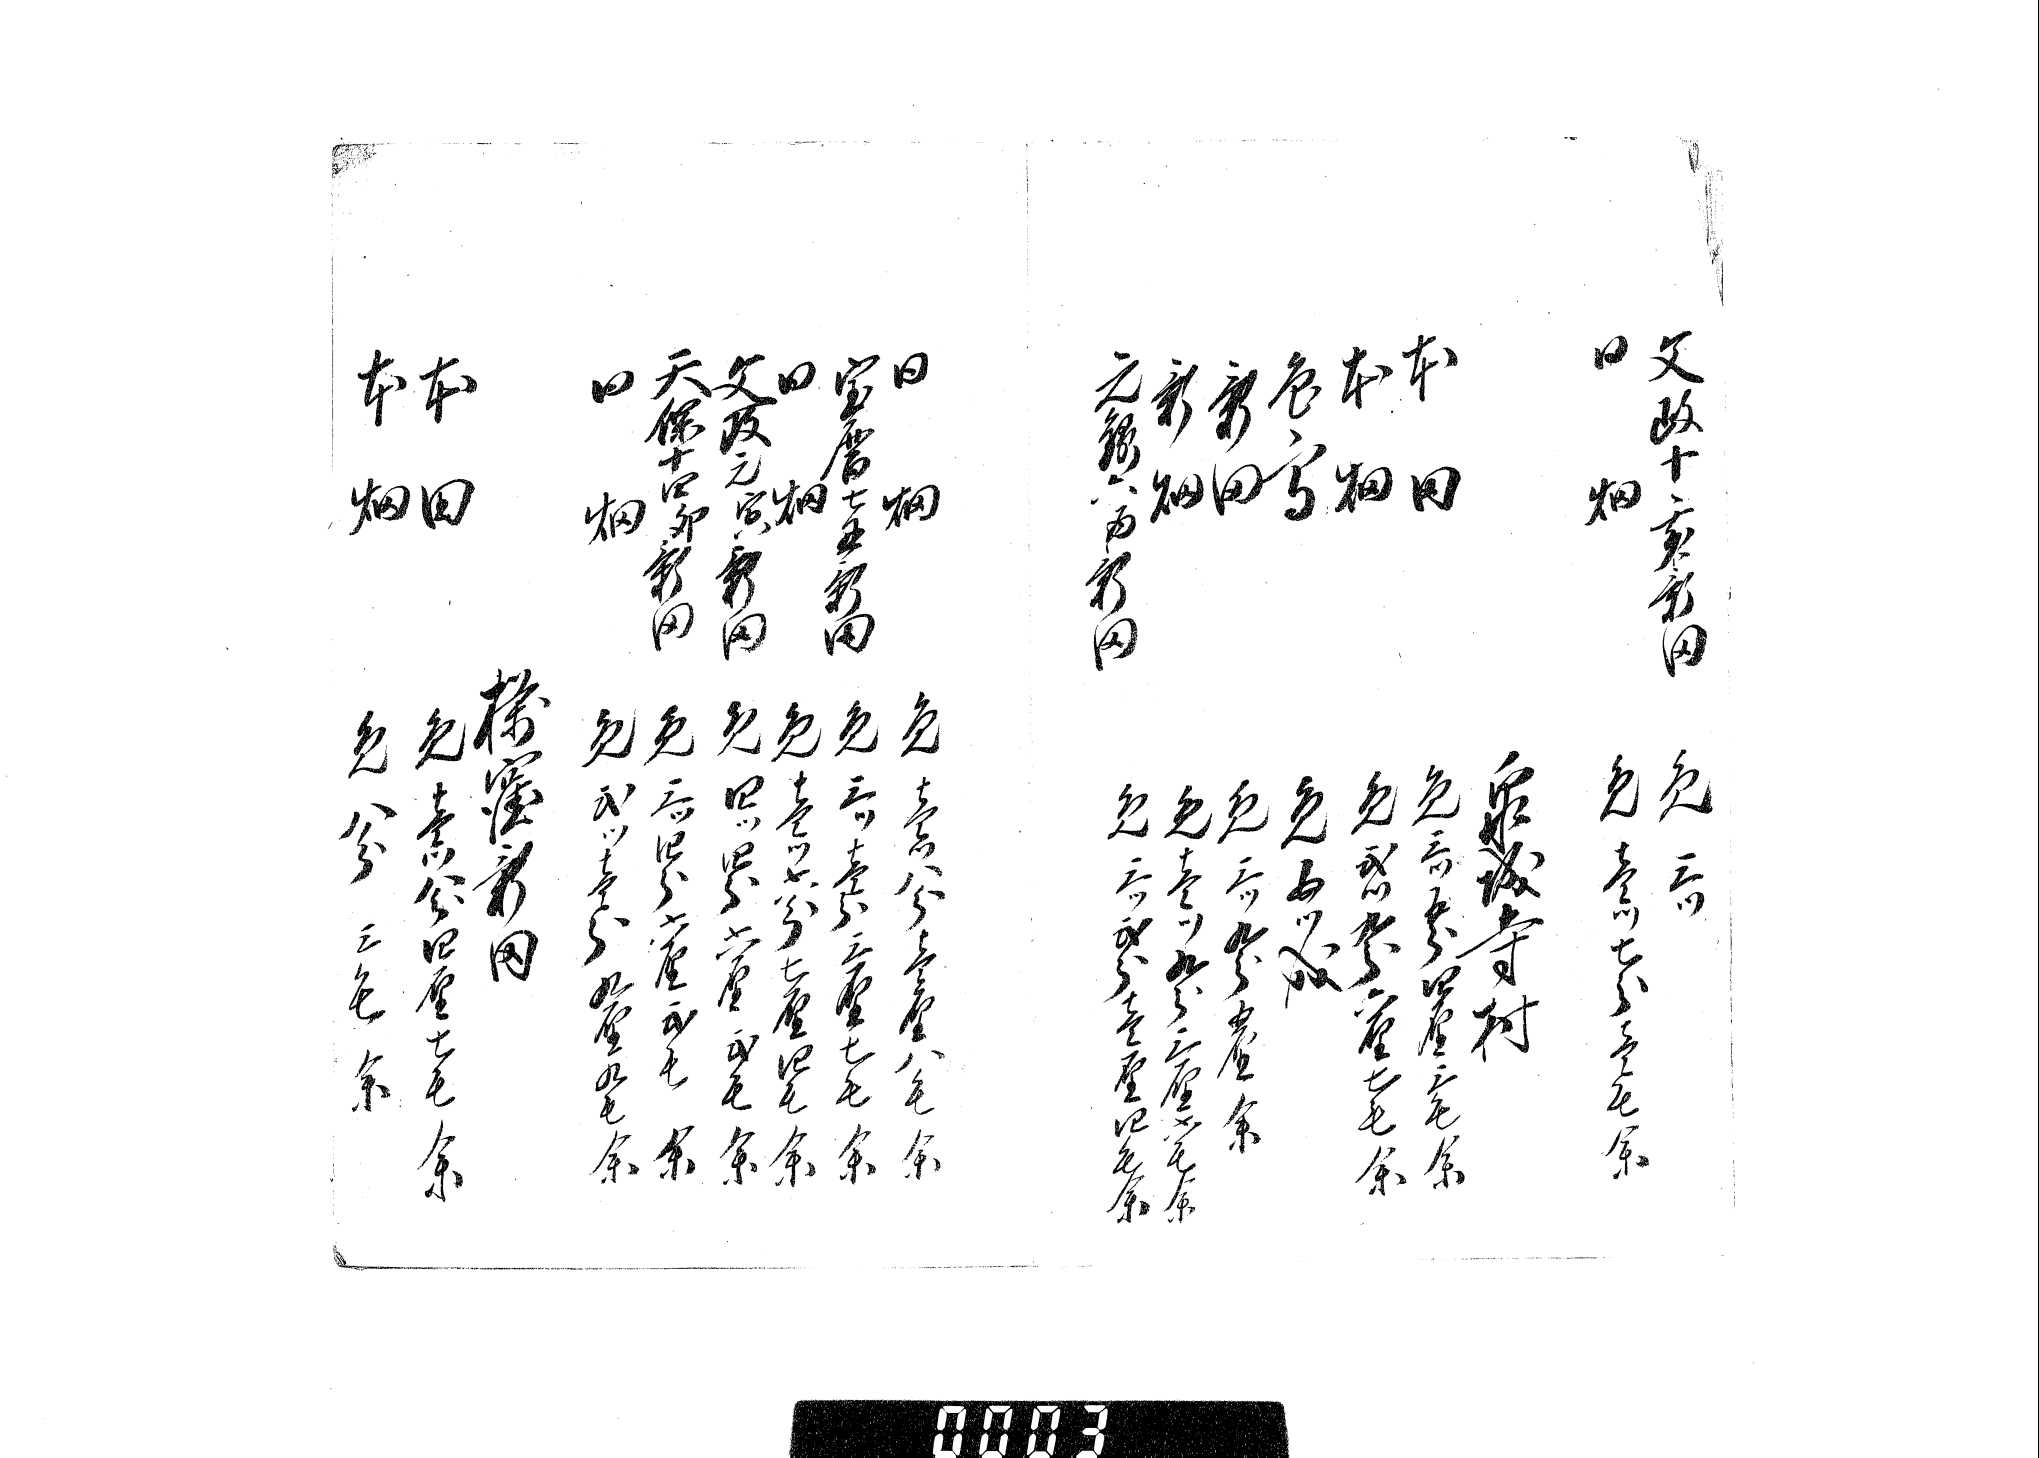 文政十二亥新田　免三ツ
同畑　免壱ツ七分壱毛余
泉城寺村
本田　免三ツ五分四厘三毛余
本畑　免弐ツ九分六厘七毛余
色高　免五ツ成
新田　免三ツ九分五厘余
新畑　免壱ツ九分三厘六毛余
元禄六酉新田　免三ツ弐分壱厘四毛余
同畑　免壱ツ八分壱厘八毛余
宝暦七丑新田　免三ツ壱分三厘七毛余
同畑　免壱ツ六分七厘四毛余
文政元寅新田　免四ツ四分六厘弐毛余
天保十四卯新田　免三ツ四分六厘弐毛余
同畑　免弐ツ壱分九厘九毛余
窪新田
本田　免壱ツ八分四厘七毛余
本畑　免八分三毛余
0003